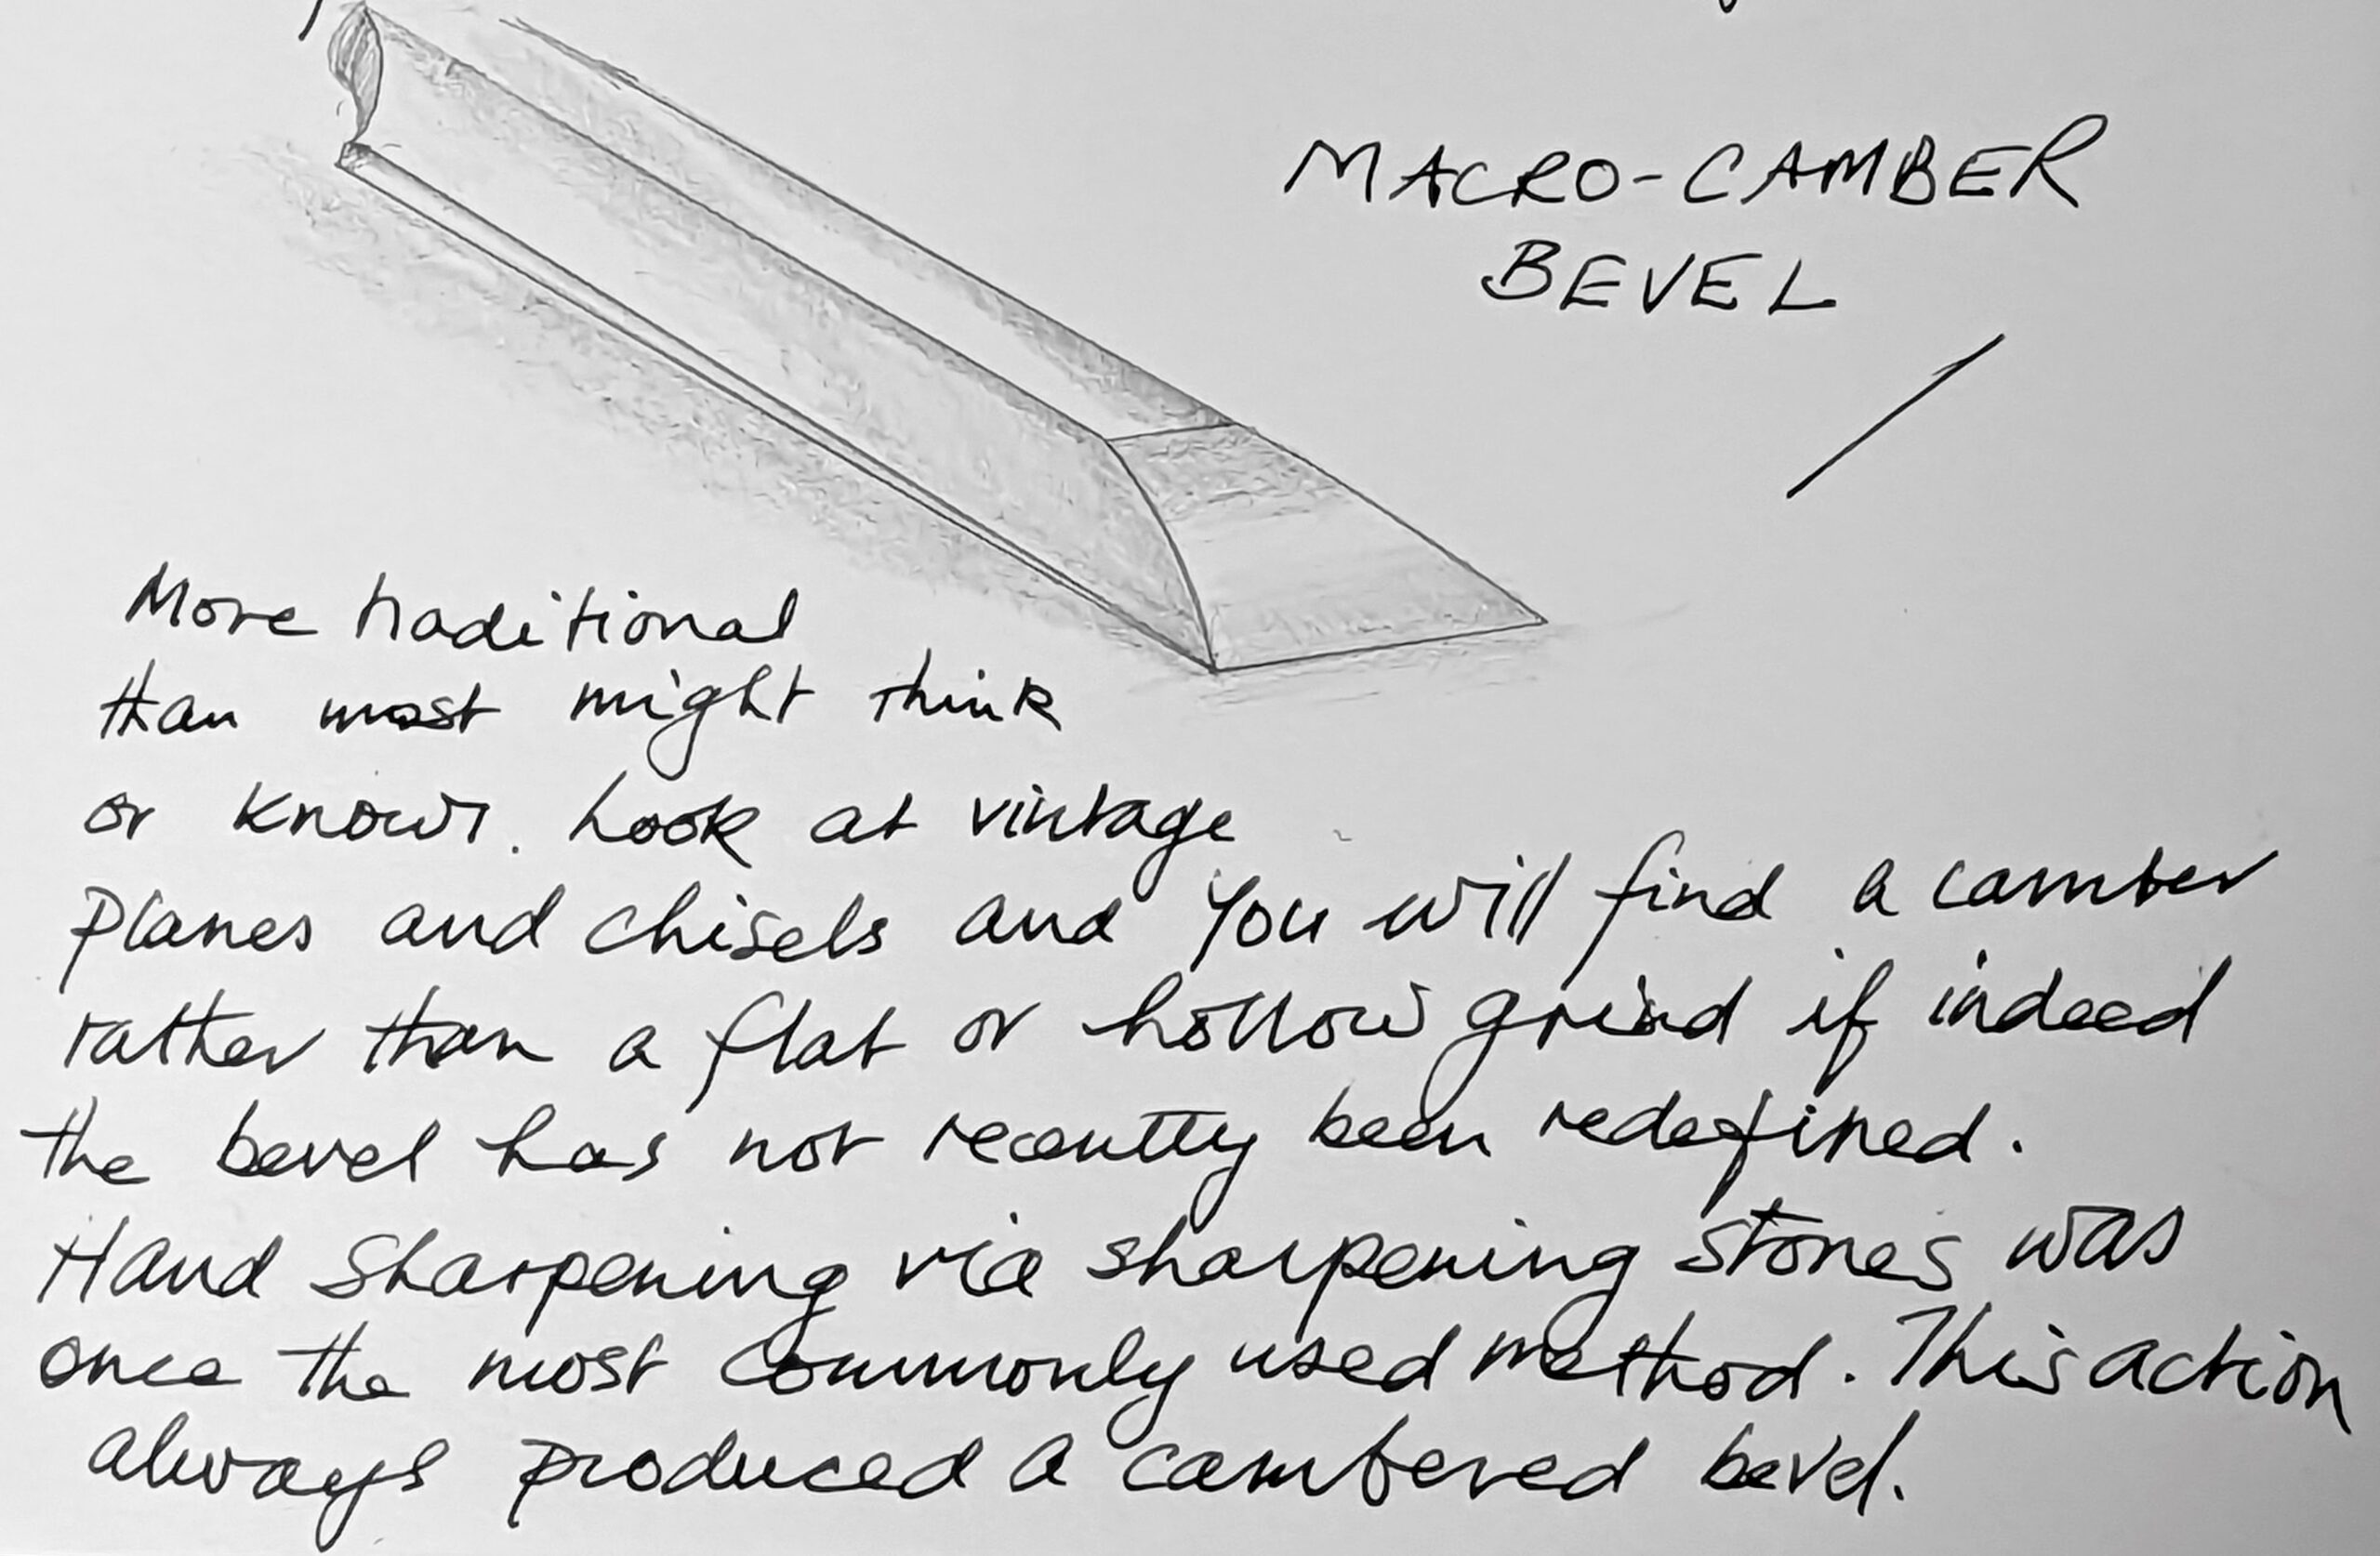 MACRO-CAMBER
BEVEL
More traditional
than most might think
or know. Look at vintage
planes and chisels and you will find a camber
rather than a flat or hollow grind if indeed
the bevel has not recently been redefined.
Hand sharpening via sharpening stones was
once the most commonly used method. This action
always produced a cambered bevel.